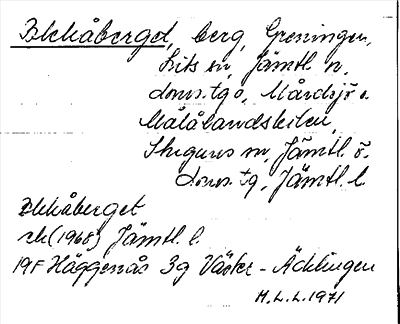 Blekåberget, berg, Greningen,
Lits sn, Jämtl. n.
doms.tg o. Mårdsjö o.
Målålandskilen,
Stuguns sn, Jämtl. ö.
doms.tg, Jämtl. l.
Blekåberget
ek (1968) Jämtl. l.
19F Häggenås 3g Väster-Äcklingen
H.L.L. 1971